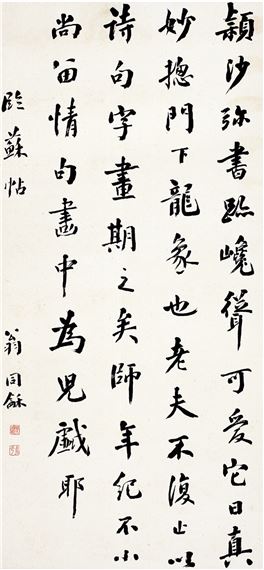 穎沙弥書跡巉聳可愛它日真
妙摠門下龍象也老夫不復止以
詩句字畫期之矣師年紀不小
尚留情句畫中為兒戲耶
臨蘇帖
翁同龢